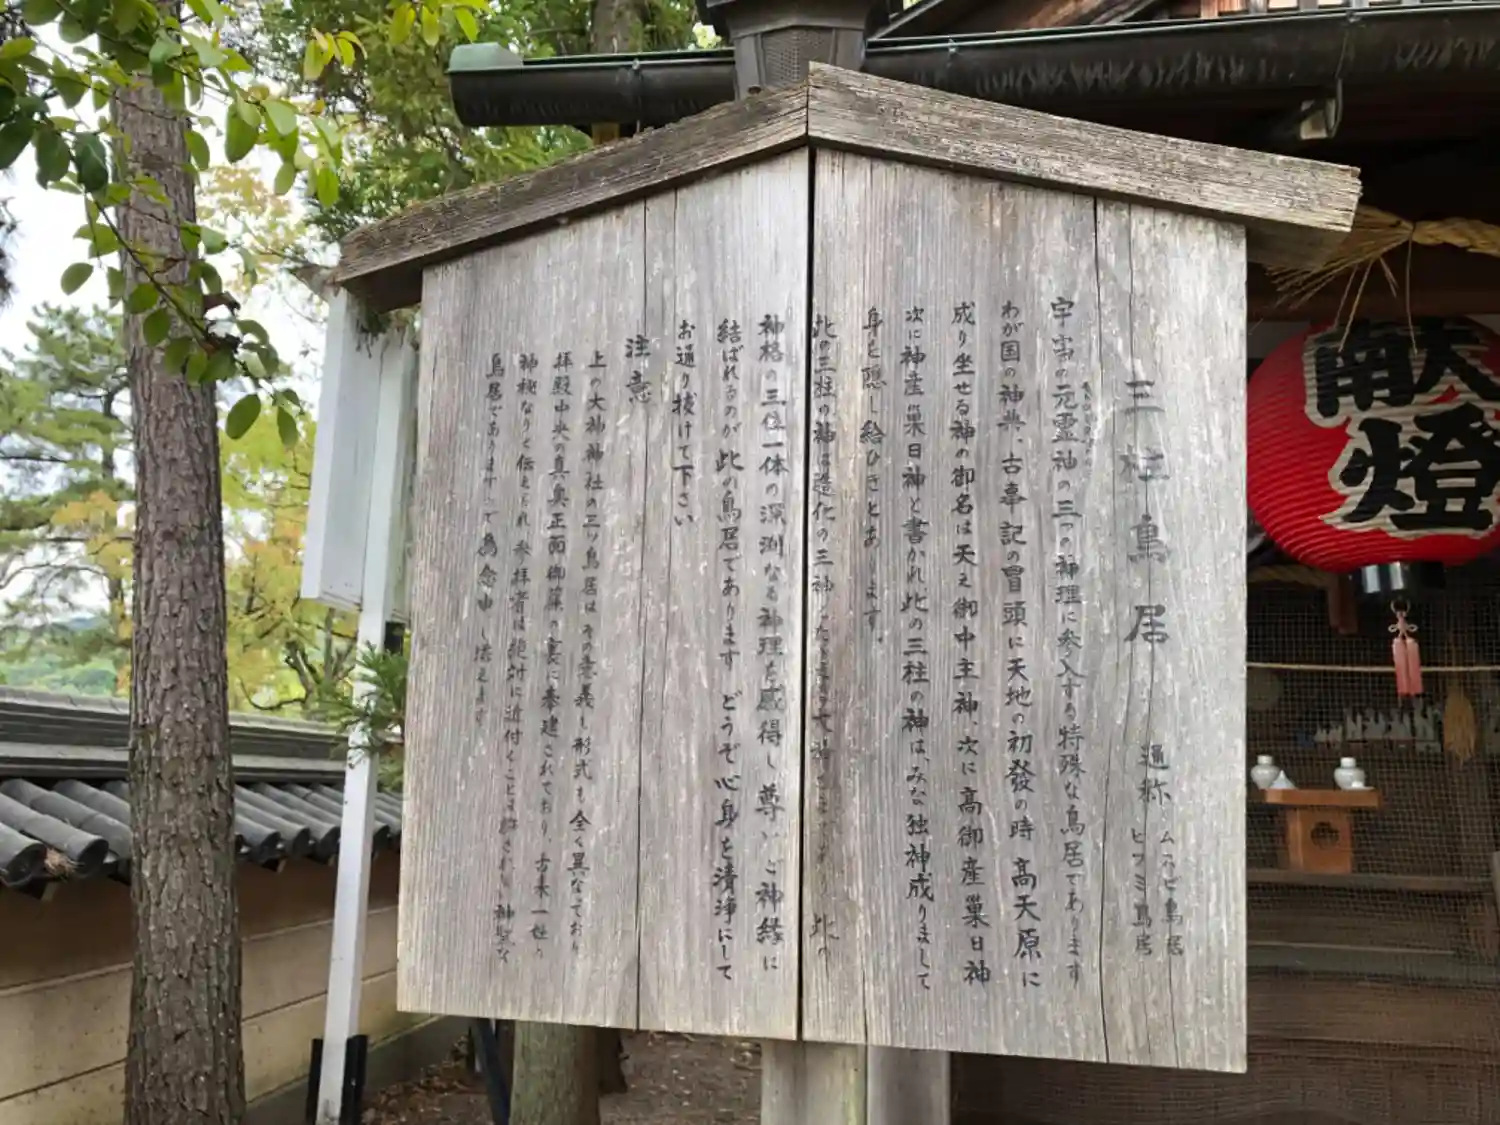 三柱鳥居
通称 ムスビ鳥居
ヒフミ鳥居
宇宙の元霊神の三つの神理に参入する特殊な鳥居であります
わが国の神典、古事記の冒頭に天地の初發の時 高天原に
成り坐せる神の御名は天之御中主神、次に高御産巣日神
次に神産巣日神と書かれ此の三柱の神は、みな独神成りまして
身を隠し給ひきとあります。
此の三柱の神は造化の三神 此の
神格の三位一体の深渕なる神理を感得し尊いご神縁に
結ばれるのが此の鳥居であります どうぞ心身を清浄にして
お通り抜けて下さい
注意
上の大神神社の三ツ鳥居はその意義も形式も全く異なっており
拝殿中央の真奥正面御簾の裏に奉建されており、古来一社の
神秘なりと伝えられ参拝者は絶対に近付くことは許されない神聖な
鳥居であります 為念申し添えます
献燈